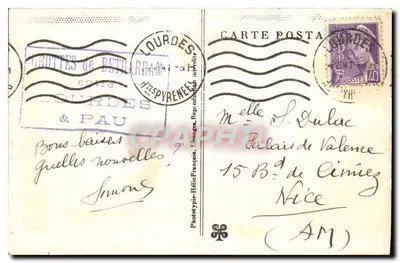 CARTE POSTA
LOURDES
Htes PYRENEES
LOURDES
GROTTES DE BETHARRAM
entre
LOURDES
& PAU
Bons baisers
quelles nouvelles ?
Simone
Phototypie-Hélio-Français, Limoges, Reproduction interdite
Melle S. Dulac
Palais de Valence
15 Bd de Cimiez
Nice
(AM)
40